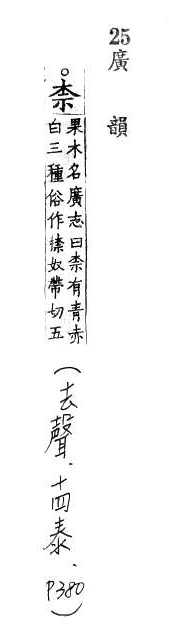 25 廣韻
○柰
果木名廣志曰柰有青赤
白三種俗作㮈奴帶切五
（去聲．十四泰、P380）